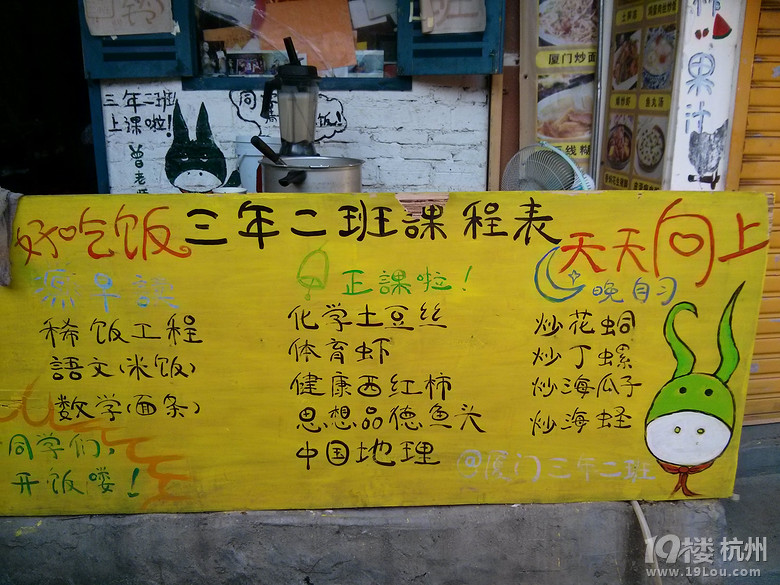 三年二班
上課啦!
曾老
厦门炒面
果汁
好吃饭
三年二班課程表
天天向上
早讀
正課啦!
晚自习
稀饭工程
語文(米饭)
数学(面条)
化学土豆丝
体育虾
健康西红柿
思想品德鱼头
中国地理
炒花蛤
炒丁螺
炒海瓜子
炒海蛏
同学们,
开饭喽!
@厦门三年二班
19楼 杭州
www.19Lou.com